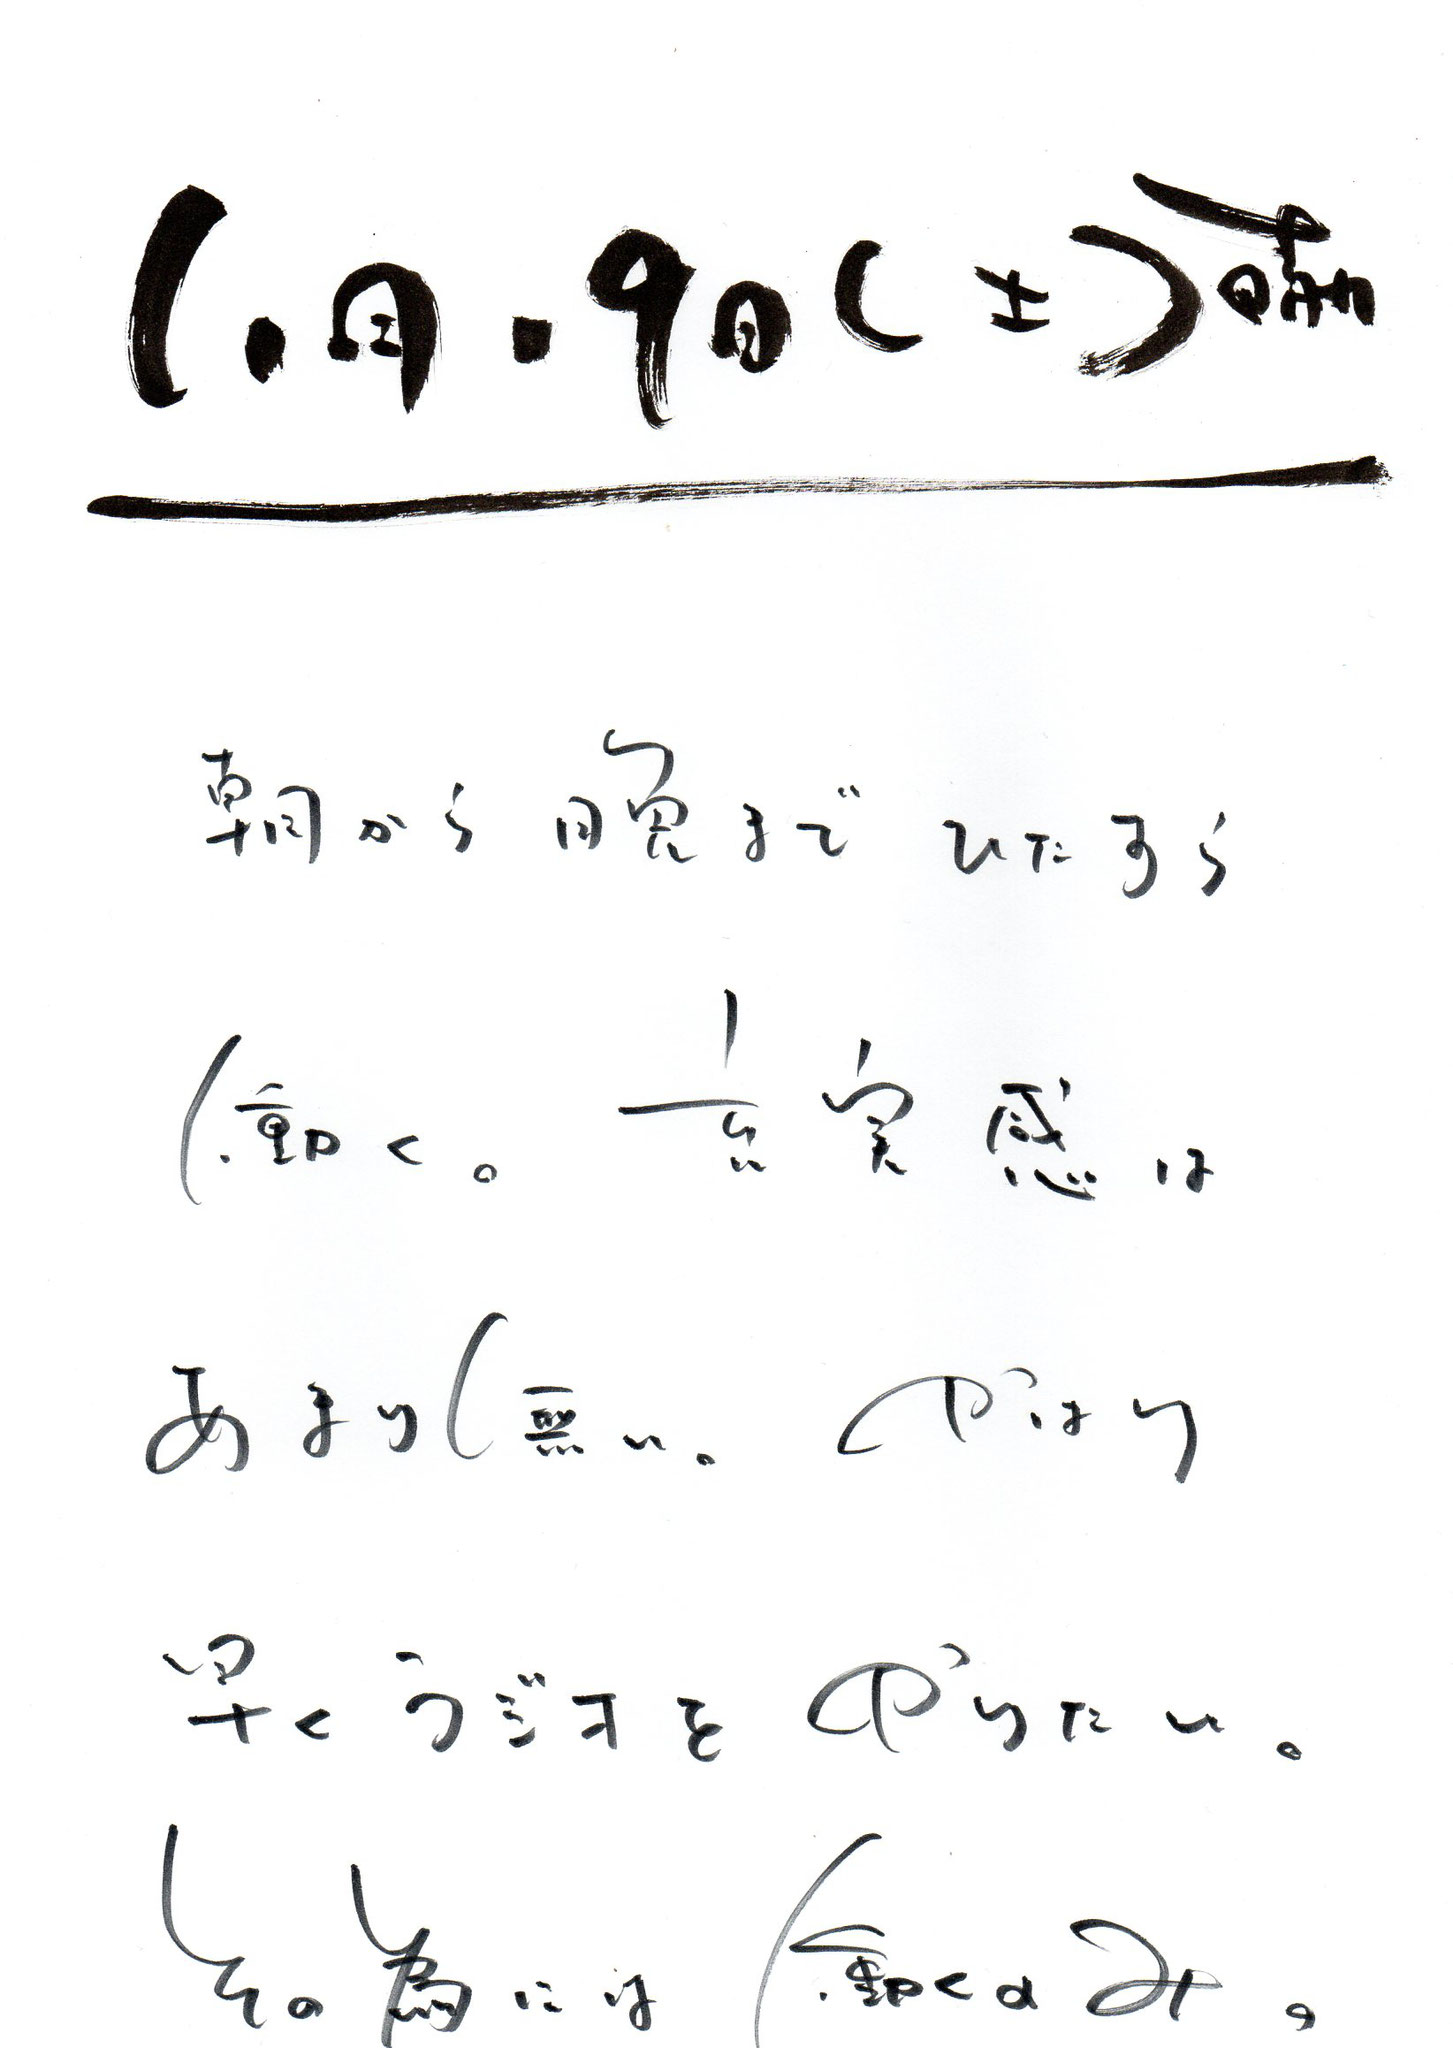 1.月.9日(土)晴
朝から晩までひたすら
働く。充実感は
あまり無い。やはり
早くラジオをやりたい。
その為には働くのみ。